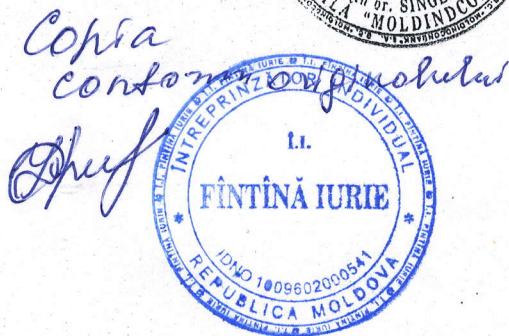 or. SINGE
"MOLDINDCO
Copia
conform originalului
ÎNTREPRINZĂTOR INDIVIDUAL
Î.I.
FÎNTÎNĂ IURIE
IDNO 1009602000541
REPUBLICA MOLDOVA